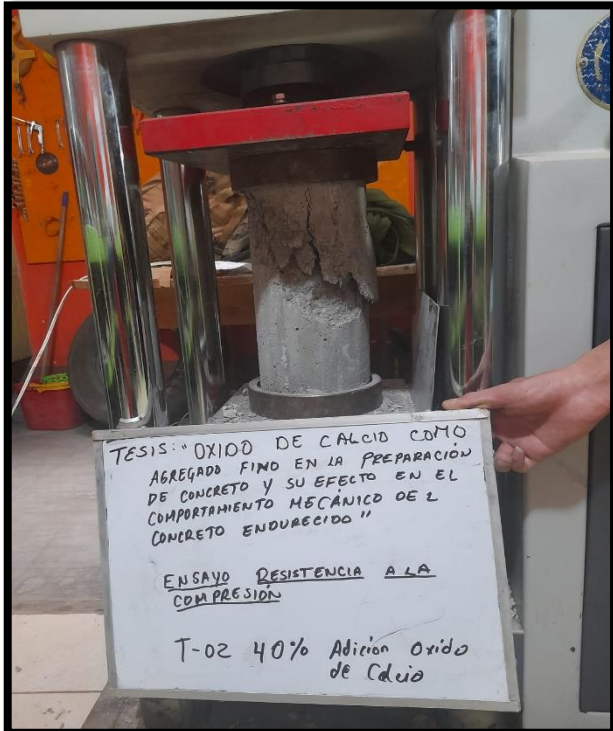 TESIS: "OXIDO DE CALCIO COMO
AGREGADO FINO EN LA PREPARACIÓN
DE CONCRETO Y SU EFECTO EN EL
COMPORTAMIENTO MECÁNICO DE L
CONCRETO ENDURECIDO"
ENSAYO RESISTENCIA A LA
COMPRESIÓN
T-02 40% Adición Oxido
de Calcio